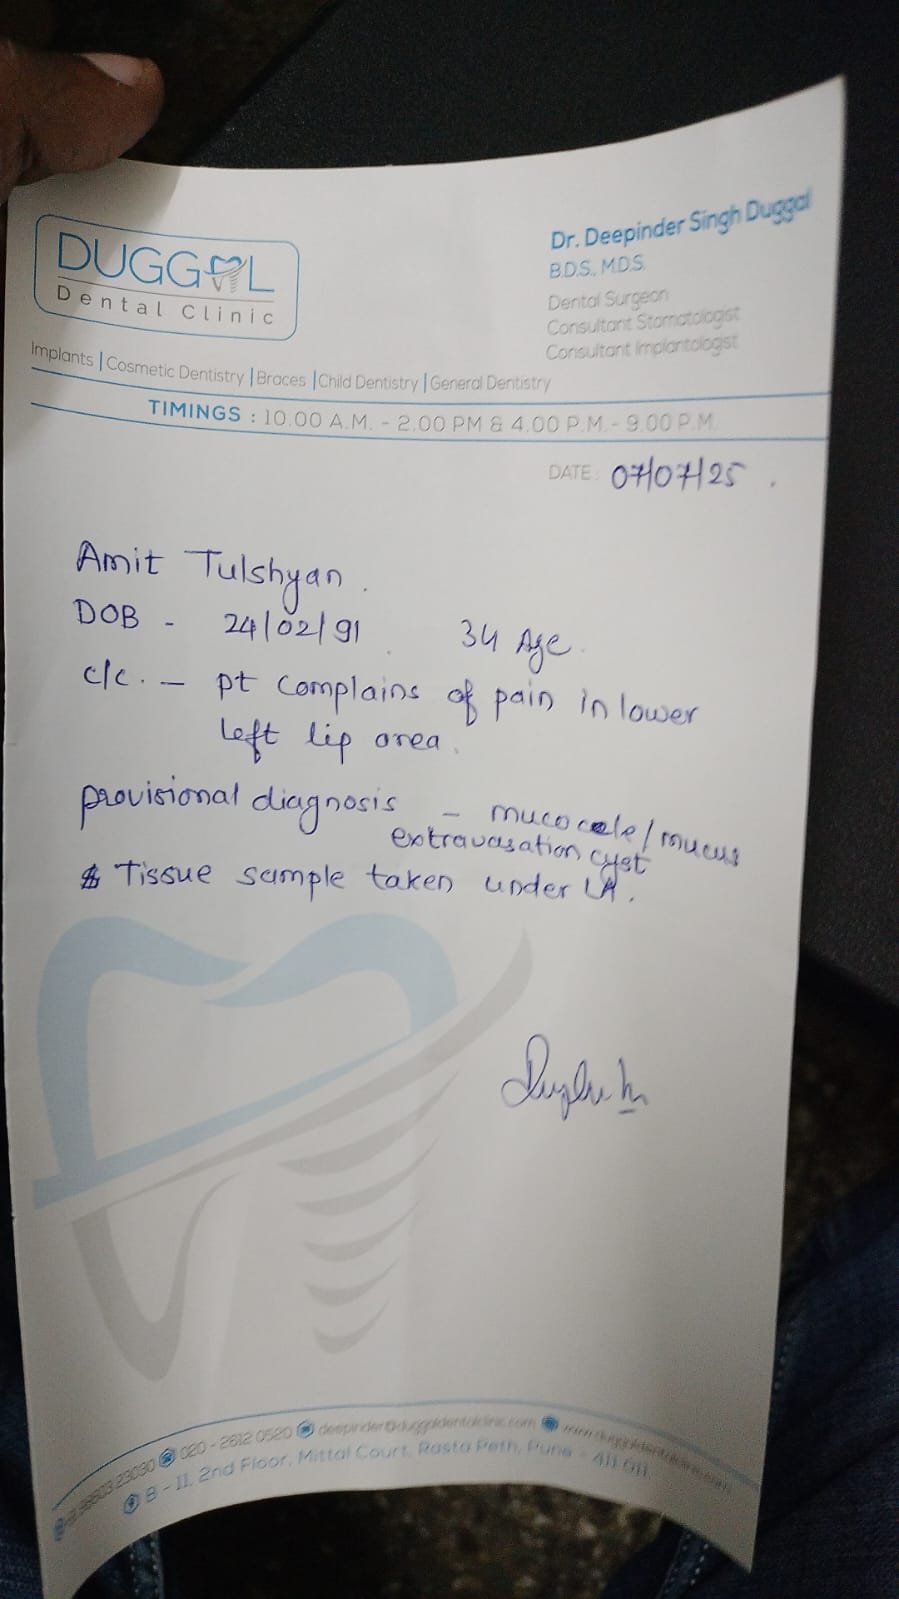 DUGGAL
Dental Clinic
Dr. Deepinder Singh Duggal
B.D.S., M.D.S.
Dental Surgeon
Consultant Stomatologist
Consultant Implantologist
Implants | Cosmetic Dentistry | Braces | Child Dentistry | General Dentistry
TIMINGS : 10.00 A.M. - 2.00 PM & 4.00 P.M. - 9.00 P.M.
DATE: 07/07/25
Amit Tulshyan.
DOB - 24/02/91 34 Age.
c/c. - pt complains of pain in lower
left lip area.
provisional diagnosis - mucocele/mucus
extravasation cyst
Tissue sample taken under LA.
020 - 2612 0520 deepinder@duggaldentalclinic.com www.duggaldentalclinic.com
B - 11, 2nd Floor, Mittal Court, Rasta Peth, Pune - 411 011